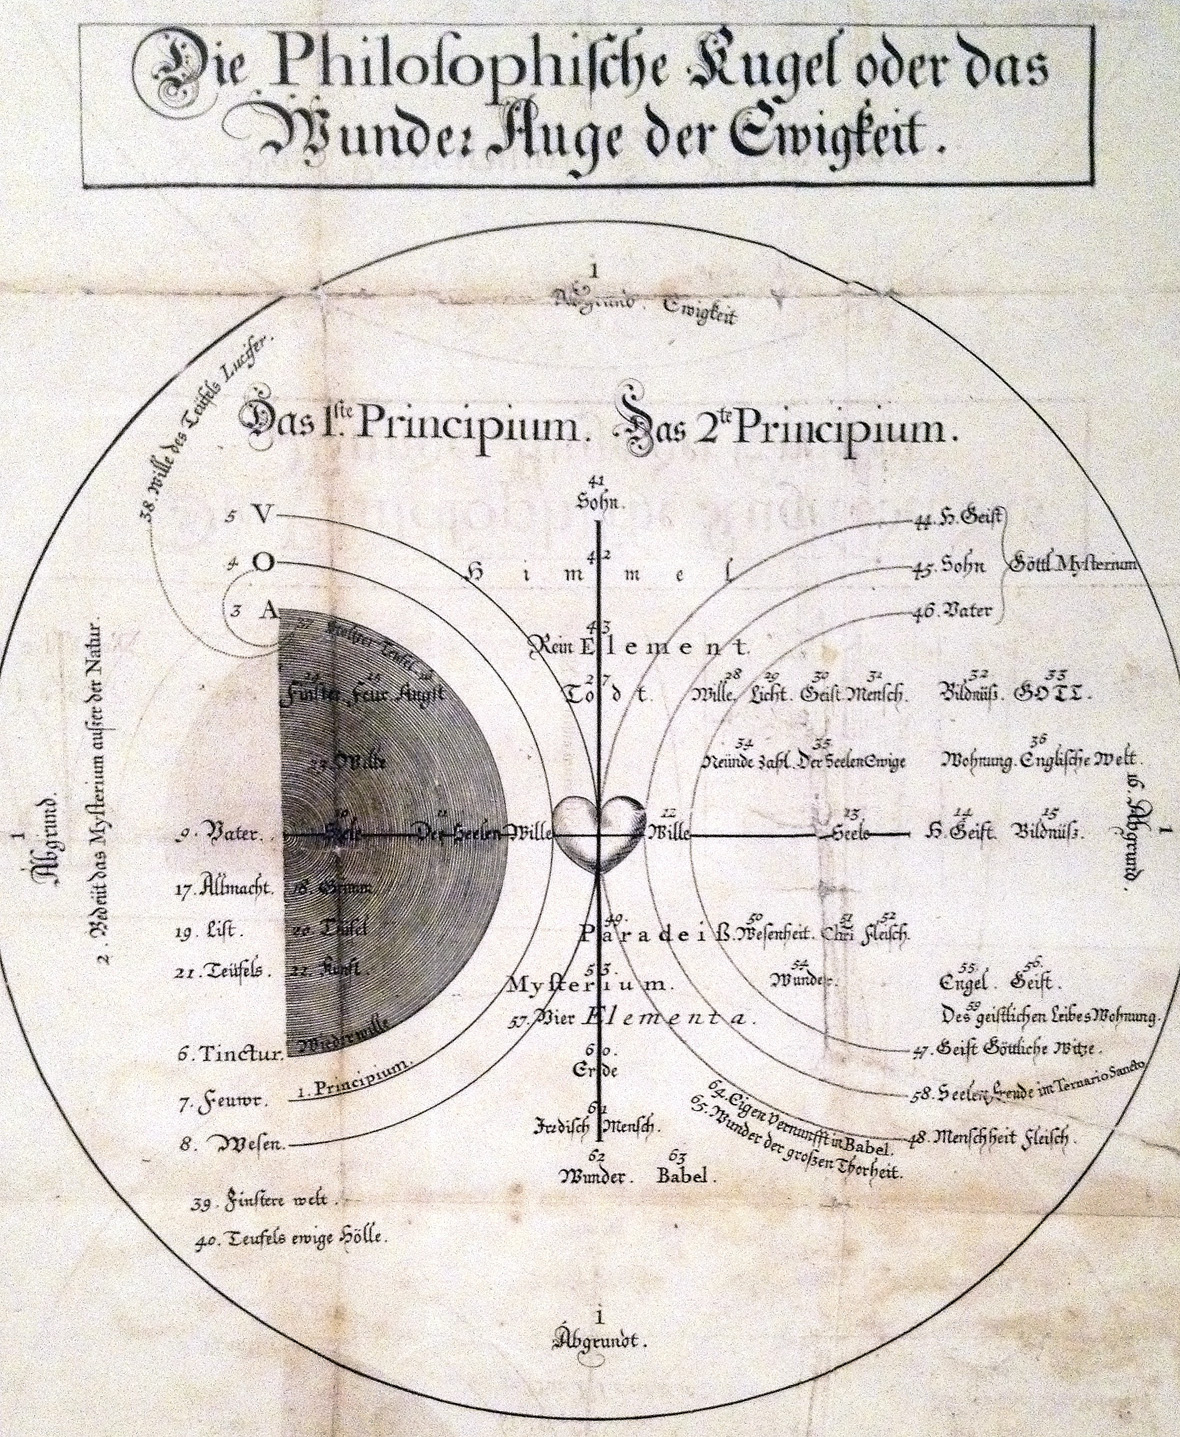 Die Philosophische Kugel oder das
Wunder Auge der Ewigkeit.
1
Abgrund. Ewigkeit
38. Wille des Teüfels Lucifer.
Das 1.ste Principium. Das 2te Principium.
41
Sohn.
5 V
44. H. Geist
42
Himmel
4 O
45. Sohn
Göttl Mysterium
3 A
46. Vater
43
Rein Element.
37 Teufel
24 25 26
Finster Feur Angst
27
Todt.
28 29 30 31 32 33
Wille. Licht. Geist Mensch. Bildnüß. GOTT.
23. Wille
34 35 36
Neünde Zahl. Der Seelen Ewige Wohnung. Englische Welt.
1
Abgrund.
2. Bedeüt das Mysterium außer der Natur.
10 11 12 13 14 15
9. Vater. Seele Der Seelen Wille Wille Seele H. Geist. Bildnüß.
16. Abgrund.
1
17. Allmacht. 18. Grimm
49. 50 51 52
Paradeiß. Wesenheit. Chri Fleisch.
19. List. 20. Teüfel
21. Teüfels. 22. Kunst.
53.
Mysterium.
54
Wunder.
55. 56.
Engel. Geist.
57. Vier Elementa.
59
Des geistlichen Leibes Wohnung.
6. Tinctur. Wiederwille
60.
Erde
47. Geist Göttliche Witze.
7. Feuwr. 1. Principium.
58. Seelen Freude im Ternario Sancto
61
Irrdisch Mensch.
64. Eigen Vernunfft in Babel.
65. Wunder der großen Thorheit.
8. Wesen.
48. Menschheit Fleisch.
62 63
Wunder. Babel.
39. Finstere welt.
40. Teufels ewige Hölle.
1
Abgrundt.